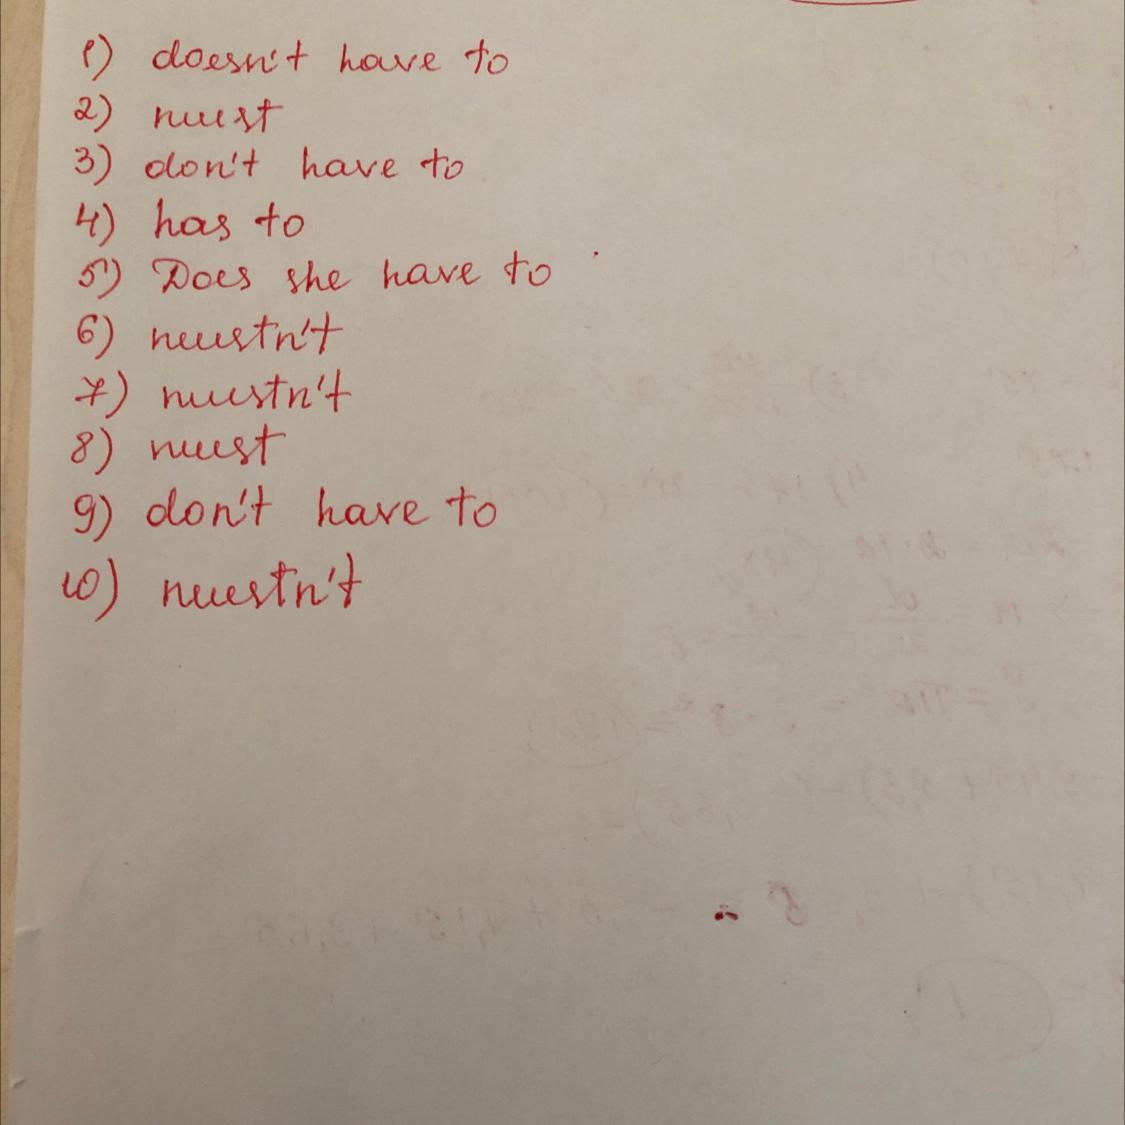 1) doesn't have to
2) must
3) don't have to
4) has to
5) Does she have to
6) mustn't
7) mustn't
8) must
9) don't have to
10) mustn't